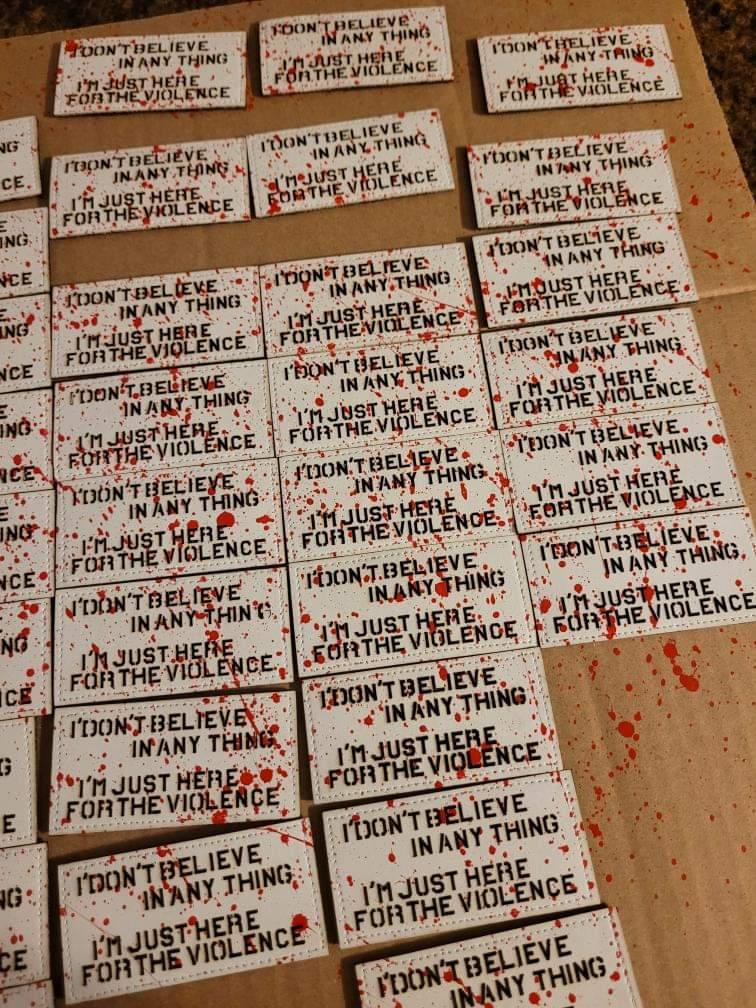 I DON'T BELIEVE
IN ANY THING
I'M JUST HERE
FOR THE VIOLENCE
I DON'T BELIEVE
IN ANY THING
I'M JUST HERE
FOR THE VIOLENCE
I DON'T BELIEVE
IN ANY THING
I'M JUST HERE
FOR THE VIOLENCE
I DON'T BELIEVE
IN ANY THING
I'M JUST HERE
FOR THE VIOLENCE
I DON'T BELIEVE
IN ANY THING
I'M JUST HERE
FOR THE VIOLENCE
I DON'T BELIEVE
IN ANY THING
I'M JUST HERE
FOR THE VIOLENCE
I DON'T BELIEVE
IN ANY THING
I'M JUST HERE
FOR THE VIOLENCE
I DON'T BELIEVE
IN ANY THING
I'M JUST HERE
FOR THE VIOLENCE
I DON'T BELIEVE
IN ANY THING
I'M JUST HERE
FOR THE VIOLENCE
I DON'T BELIEVE
IN ANY THING
I'M JUST HERE
FOR THE VIOLENCE
I DON'T BELIEVE
IN ANY THING
I'M JUST HERE
FOR THE VIOLENCE
I DON'T BELIEVE
IN ANY THING
I'M JUST HERE
FOR THE VIOLENCE
I DON'T BELIEVE
IN ANY THING
I'M JUST HERE
FOR THE VIOLENCE
I DON'T BELIEVE
IN ANY THING
I'M JUST HERE
FOR THE VIOLENCE
I DON'T BELIEVE
IN ANY THING
I'M JUST HERE
FOR THE VIOLENCE
I DON'T BELIEVE
IN ANY THING
I'M JUST HERE
FOR THE VIOLENCE
I DON'T BELIEVE
IN ANY THING
I'M JUST HERE
FOR THE VIOLENCE
I DON'T BELIEVE
IN ANY THING
I'M JUST HERE
FOR THE VIOLENCE
I DON'T BELIEVE
IN ANY THING
I'M JUST HERE
FOR THE VIOLENCE
I DON'T BELIEVE
IN ANY THING
I'M JUST HERE
FOR THE VIOLENCE
I DON'T BELIEVE
IN ANY THING
I'M JUST HERE
FOR THE VIOLENCE
I DON'T BELIEVE
IN ANY THING
I'M JUST HERE
FOR THE VIOLENCE
I DON'T BELIEVE
IN ANY THING